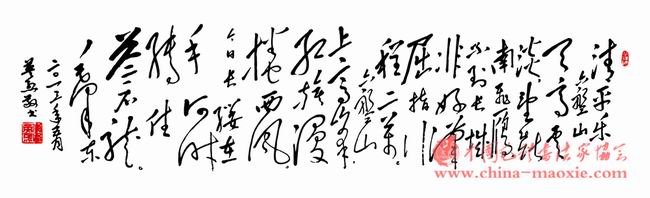 清平乐
六盘山
天高云
淡望断
南飞雁
不到长城
非好汉
屈指行
程二万
六盘山
上高峰
红旗漫
捲西风
今日长缨在
手何时
缚住
苍龙
毛泽东
二〇一三年五月
书法家協会
www.china-maoxie.com